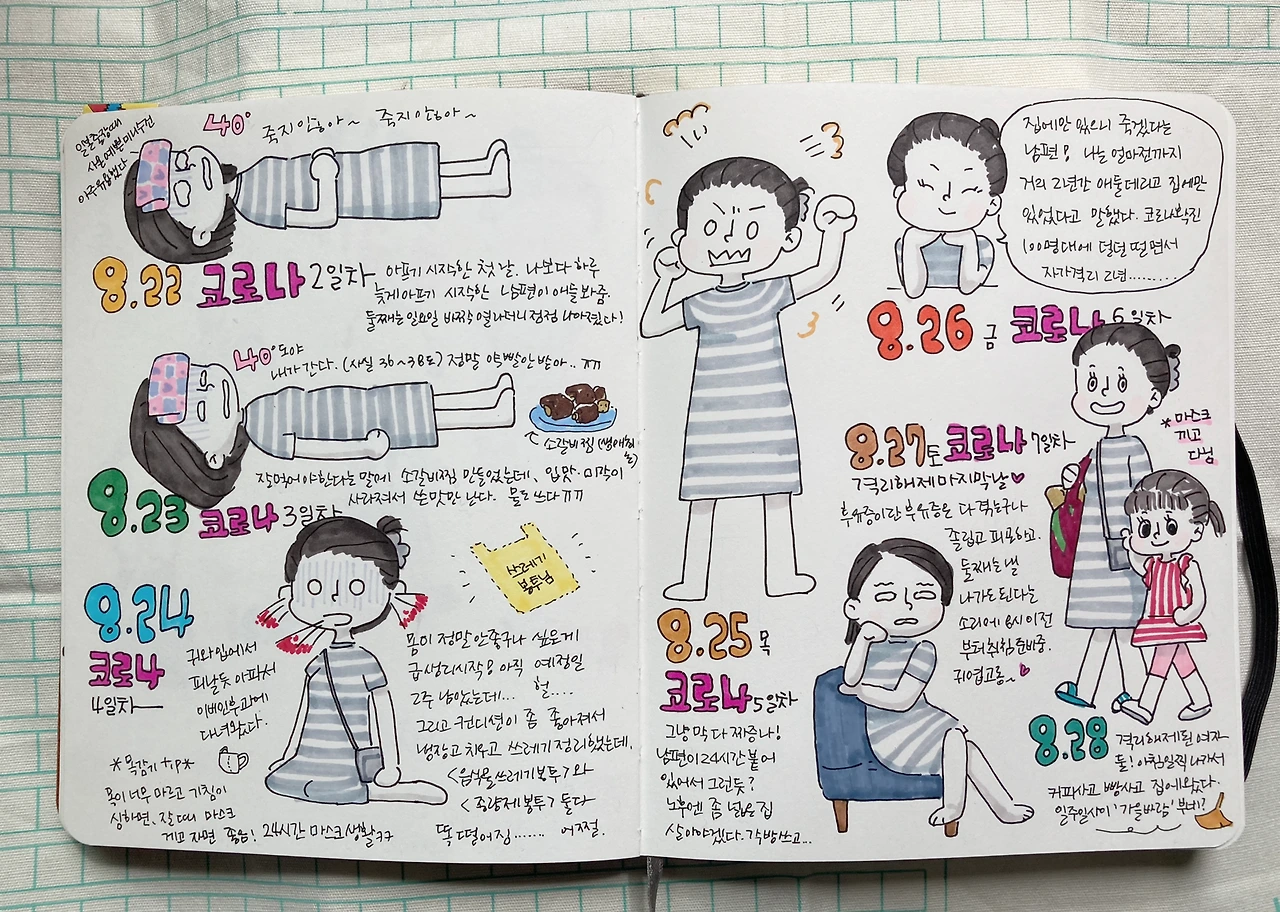 일본 출장때
사온 예쁜 미니수건
아주유용했다
40°
죽지않아~ 죽지않아~
8.22 코로나 2일차
아프기 시작한 첫 날. 나보다 하루
늦게 아프기 시작한 남편이 애들봐줌.
둘째는 일요일 바짝 열나더니 점점 나아졌다!
40°도야
내가 간다. (사실 36~38도) 정말 약빨안받아.. ㅠㅠ
소갈비찜 (생애최초)
잘먹어야한다는 말에 소갈비찜 만들었는데, 입맛·미각이
사라져서 쓴맛만 난다. 물도 쓰다ㅠㅠ
8.23 코로나 3일차
쓰레기
봉투님
8.24
코로나
4일차
귀와 입에서
피날듯 아파서
이비인후과에
다녀왔다.
*목감기 tip*
목이 너무 마르고 기침이
심하면, 잘 때 마스크
끼고 자면 좋음! 24시간 마스크생활ㅋㅋ
몸이 정말 안좋구나 싶은게
급 생리시작! 아직 예정일
2주 남았는데... 헐....
그리고 컨디션이 좀 좋아져서
냉장고 치우고 쓰레기 정리했는데,
<음식물 쓰레기봉투>와
<종량제 봉투> 둘다
똑 떨어짐....... 어쩔.
집에만 있으니 죽겠다는
남편! 나는 얼마전까지
거의 2년간 애들데리고 집에만
있었다고 말했다. 코로나확진
100명대에 덜덜 떨면서
자가격리 2년.........
8.26 금 코로나 6일차
*마스크
끼고
다님
8.27토 코로나 7일차
격리해제 마지막날♡
후유증이란 후유증은 다 겪는구나
졸립고 피곤하고.
둘째는 낼
나가도 된다는
소리에 8시 이전
부터 취침 준비중.
귀엽고롱~♡
8.25 목
코로나 5일차
그냥 막 다 짜증나!
남편이 24시간 붙어
있어서 그런듯?
노후엔 좀 넓은 집
살아야겠다. 각방쓰고...
8.28
격리해제된 여자
둘! 아침일찍 나가서
커피사고 빵사고 집에왔다.
일주일사이 '가을바람' 부네?